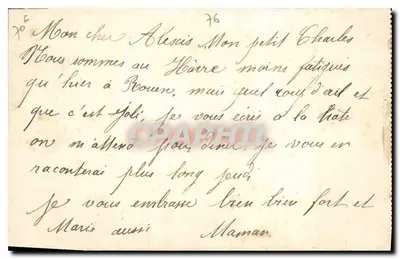 70F
76
Mon cher Alexis Mon petit Charles
Nous sommes au Hâvre moins fatigués
qu'hier à Rouen, mais quel d'œil et
que c'est joli, je vous écris à la hâte
on m'attend pour diner. je vous en
raconterai plus long jeudi
je vous embrasse bien bien fort et
Marie aussi Maman.
CPAPHIL